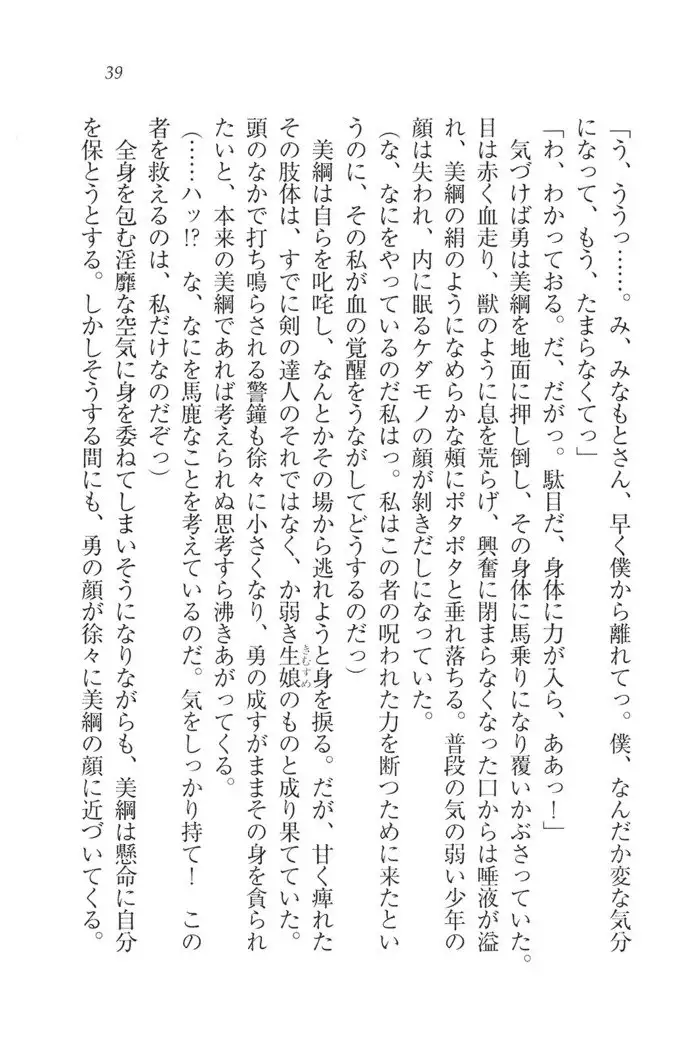 39
「う、ううっ……。み、みなもとさん、早く僕から離れてっ。僕、なんだか変な気分
になって、もう、たまらなくてっ」
「わ、わかっておる。だ、だがっ。駄目だ、身体に力が入ら、ああっ！」
気づけば勇は美綱を地面に押し倒し、その身体に馬乗りになり覆いかぶさっていた。
目は赤く血走り、獣のように息を荒らげ、興奮に閉まらなくなった口からは唾液が溢
れ、美綱の絹のようになめらかな頰にポタポタと垂れ落ちる。普段の気の弱い少年の
顔は失われ、内に眠るケダモノの顔が剝きだしになっていた。
（な、なにをやっているのだ私はっ。私はこの者の呪われた力を断つために来たとい
うのに、その私が血の覚醒をうながしてどうするのだっ）
美綱は自らを叱咤し、なんとかその場から逃れようと身を捩る。だが、甘く痺れた
その肢体は、すでに剣の達人のそれではなく、か弱き生娘きむすめのものと成り果てていた。
頭のなかで打ち鳴らされる警鐘も徐々に小さくなり、勇の成すがままその身を貪られ
たいと、本来の美綱であれば考えられぬ思考すら沸きあがってくる。
（……ハッ!?　な、なにを馬鹿なことを考えているのだ。気をしっかり持て！　この
者を救えるのは、私だけなのだぞっ）
全身を包む淫靡な空気に身を委ねてしまいそうになりながらも、美綱は懸命に自分
を保とうとする。しかしそうする間にも、勇の顔が徐々に美綱の顔に近づいてくる。